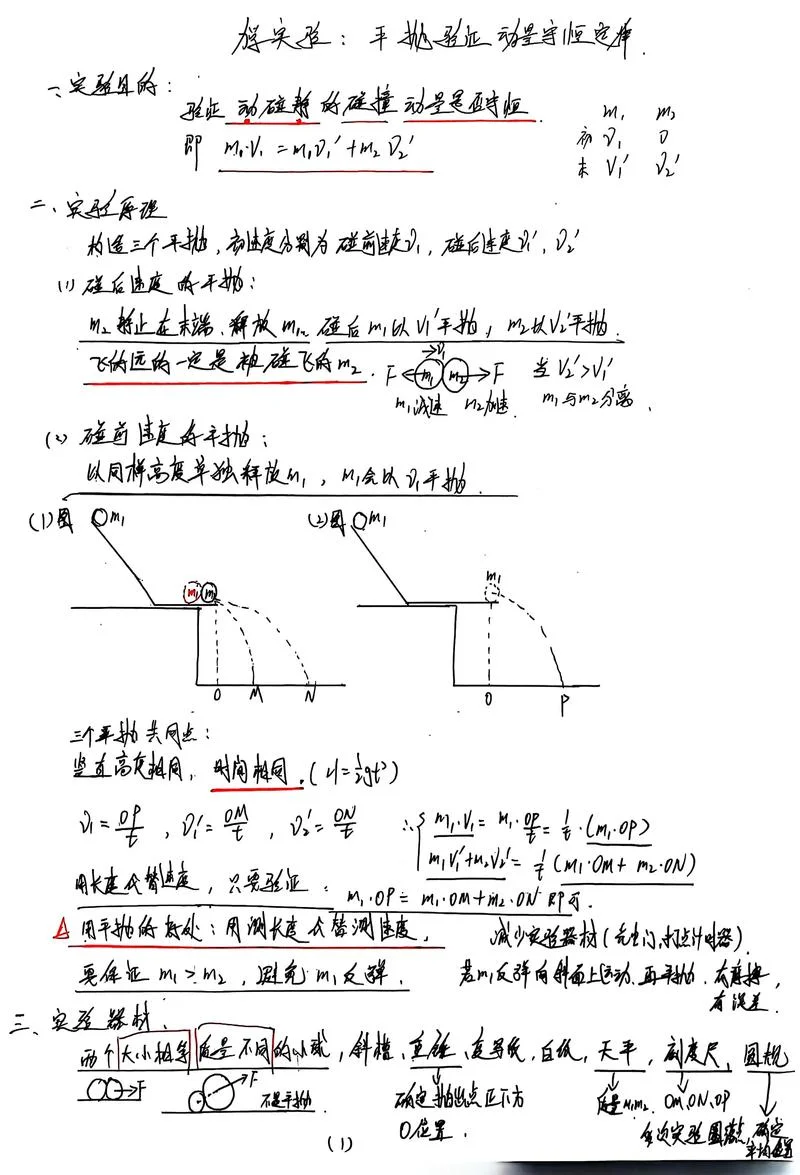 学实验：平抛验证动量守恒定律.
一、实验目的：
验证动碰静的碰撞动量是否守恒.
即 m₁·v₁ = m₁v₁′ + m₂v₂′
m₁ m₂
初 v₁ 0
末 v₁′ v₂′
二、实验原理
构造三个平抛，初速度分别为碰前速度v₁，碰后速度v₁′、v₂′
(1) 碰后速度的平抛：
m₂静止在末端、释放m₁、碰后m₁以v₁′平抛，m₂以v₂′平抛.
飞的远的一定是被碰飞的m₂.
v₁
F m₁ m₂ F
m₁减速 m₂加速
当v₂′>v₁′
m₁与m₂分离.
(2) 碰前速度的平抛：
以同样高度单独释放m₁，m₁会以v₁平抛.
(1)图 m₁
m₁ m₂
O M N
(2)图 m₁
m₁
O P
三个平抛共同点：
竖直高度相同，时间相同.(H=½gt²)
v₁=OP/t，v₁′=OM/t，v₂′=ON/t
∴{ m₁·v₁ = m₁·OP/t = 1/t·(m₁·OP)
m₁v₁′+m₂v₂′ = 1/t(m₁·OM+m₂·ON)
用长度代替速度，只要验证：m₁·OP = m₁·OM+m₂·ON 即可.
△ 用平抛的好处：用测长度代替测速度，减少实验器材(光电门,打点计时器)
要保证m₁>m₂，避免m₁反弹.
若m₁反弹向斜面上运动.再平抛.有摩擦，
有误差.
三、实验器材：
两个大小相等质量不同的小球，斜槽、重锤、复写纸，白纸，天平，刻度尺，圆规
F
F
不是平抛
确定抛出点正下方
O位置.
质量m₁m₂.
OM,ON,OP
多次实验圆落点,确定
平均位置
(1)